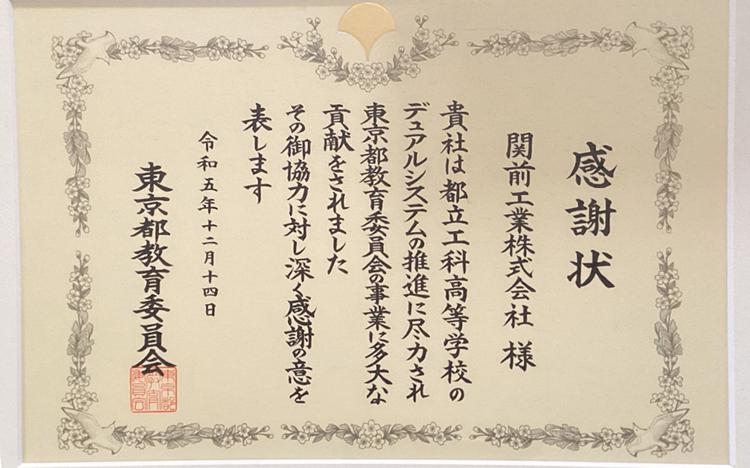 感謝状
関前工業株式会社 様
貴社は都立工科高等学校の
デュアルシステムの推進に尽力され
東京都教育委員会の事業に多大な
貢献をされました
その御協力に対し深く感謝の意を
表します
令和五年十二月十四日
東京都教育委員会